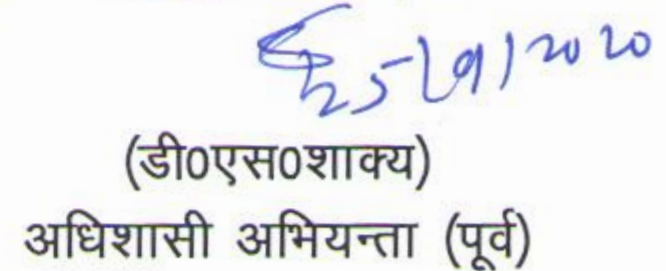 25/9/2020
(डी0एस0शाक्य)
अधिशासी अभियन्ता (पूर्व)